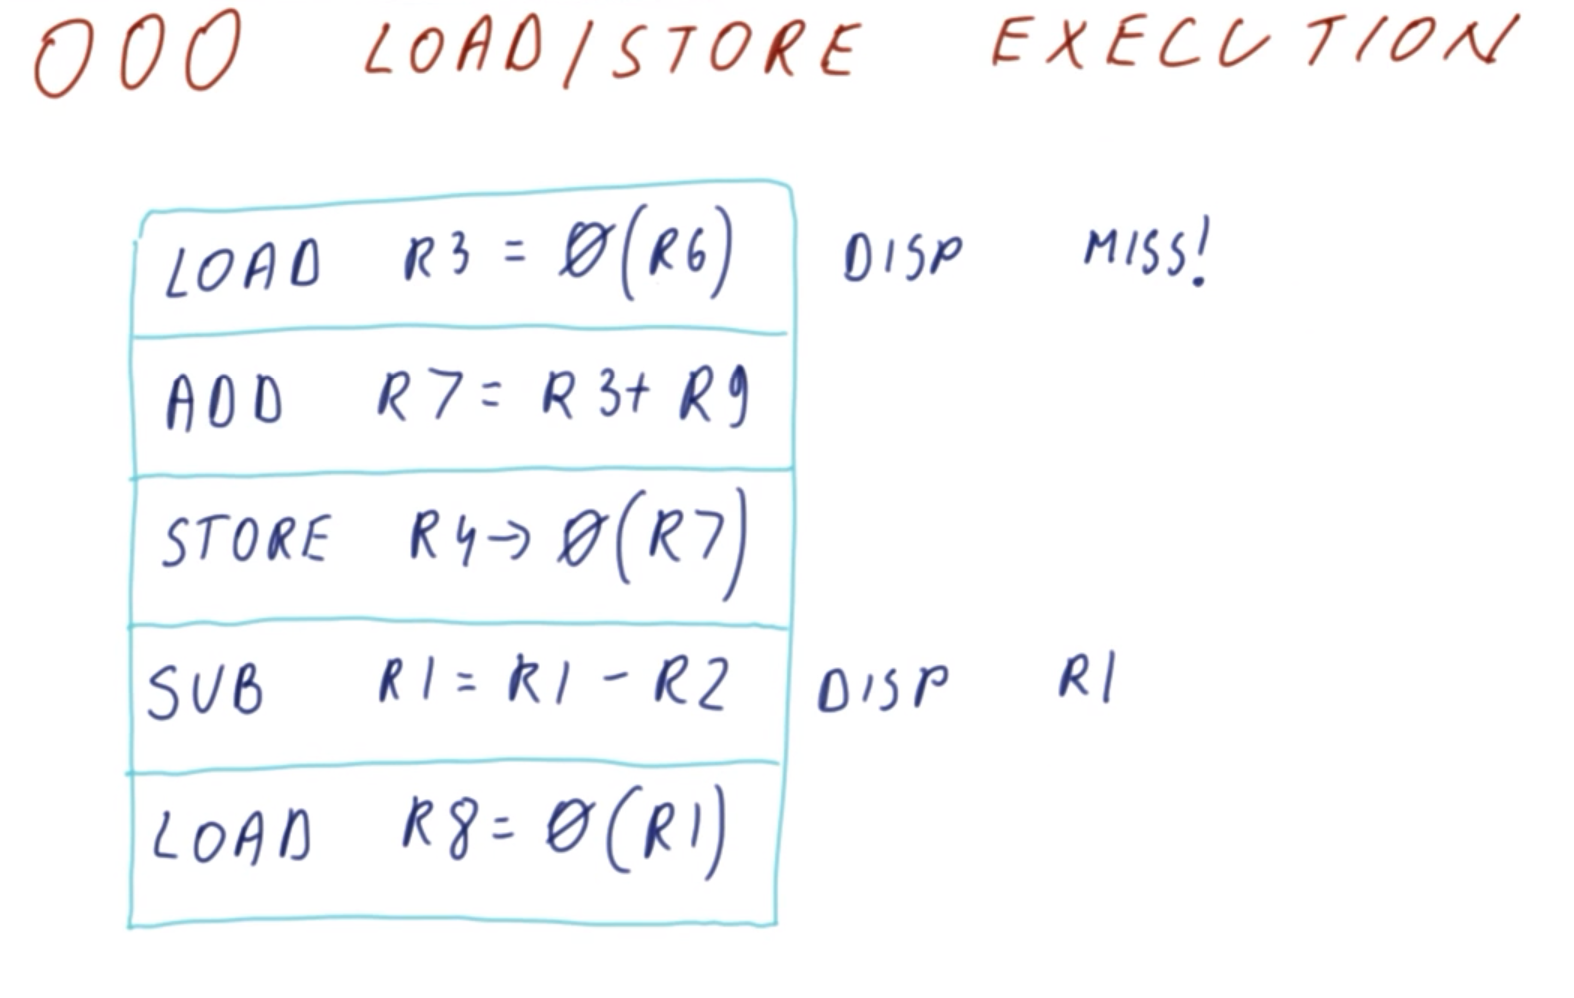 OOO LOAD/STORE EXECUTION
LOAD R3 = 0(R6) DISP MISS!
ADD R7 = R3+ R9
STORE R4→ 0(R7)
SUB R1 = R1 - R2 DISP R1
LOAD R8 = 0(R1)